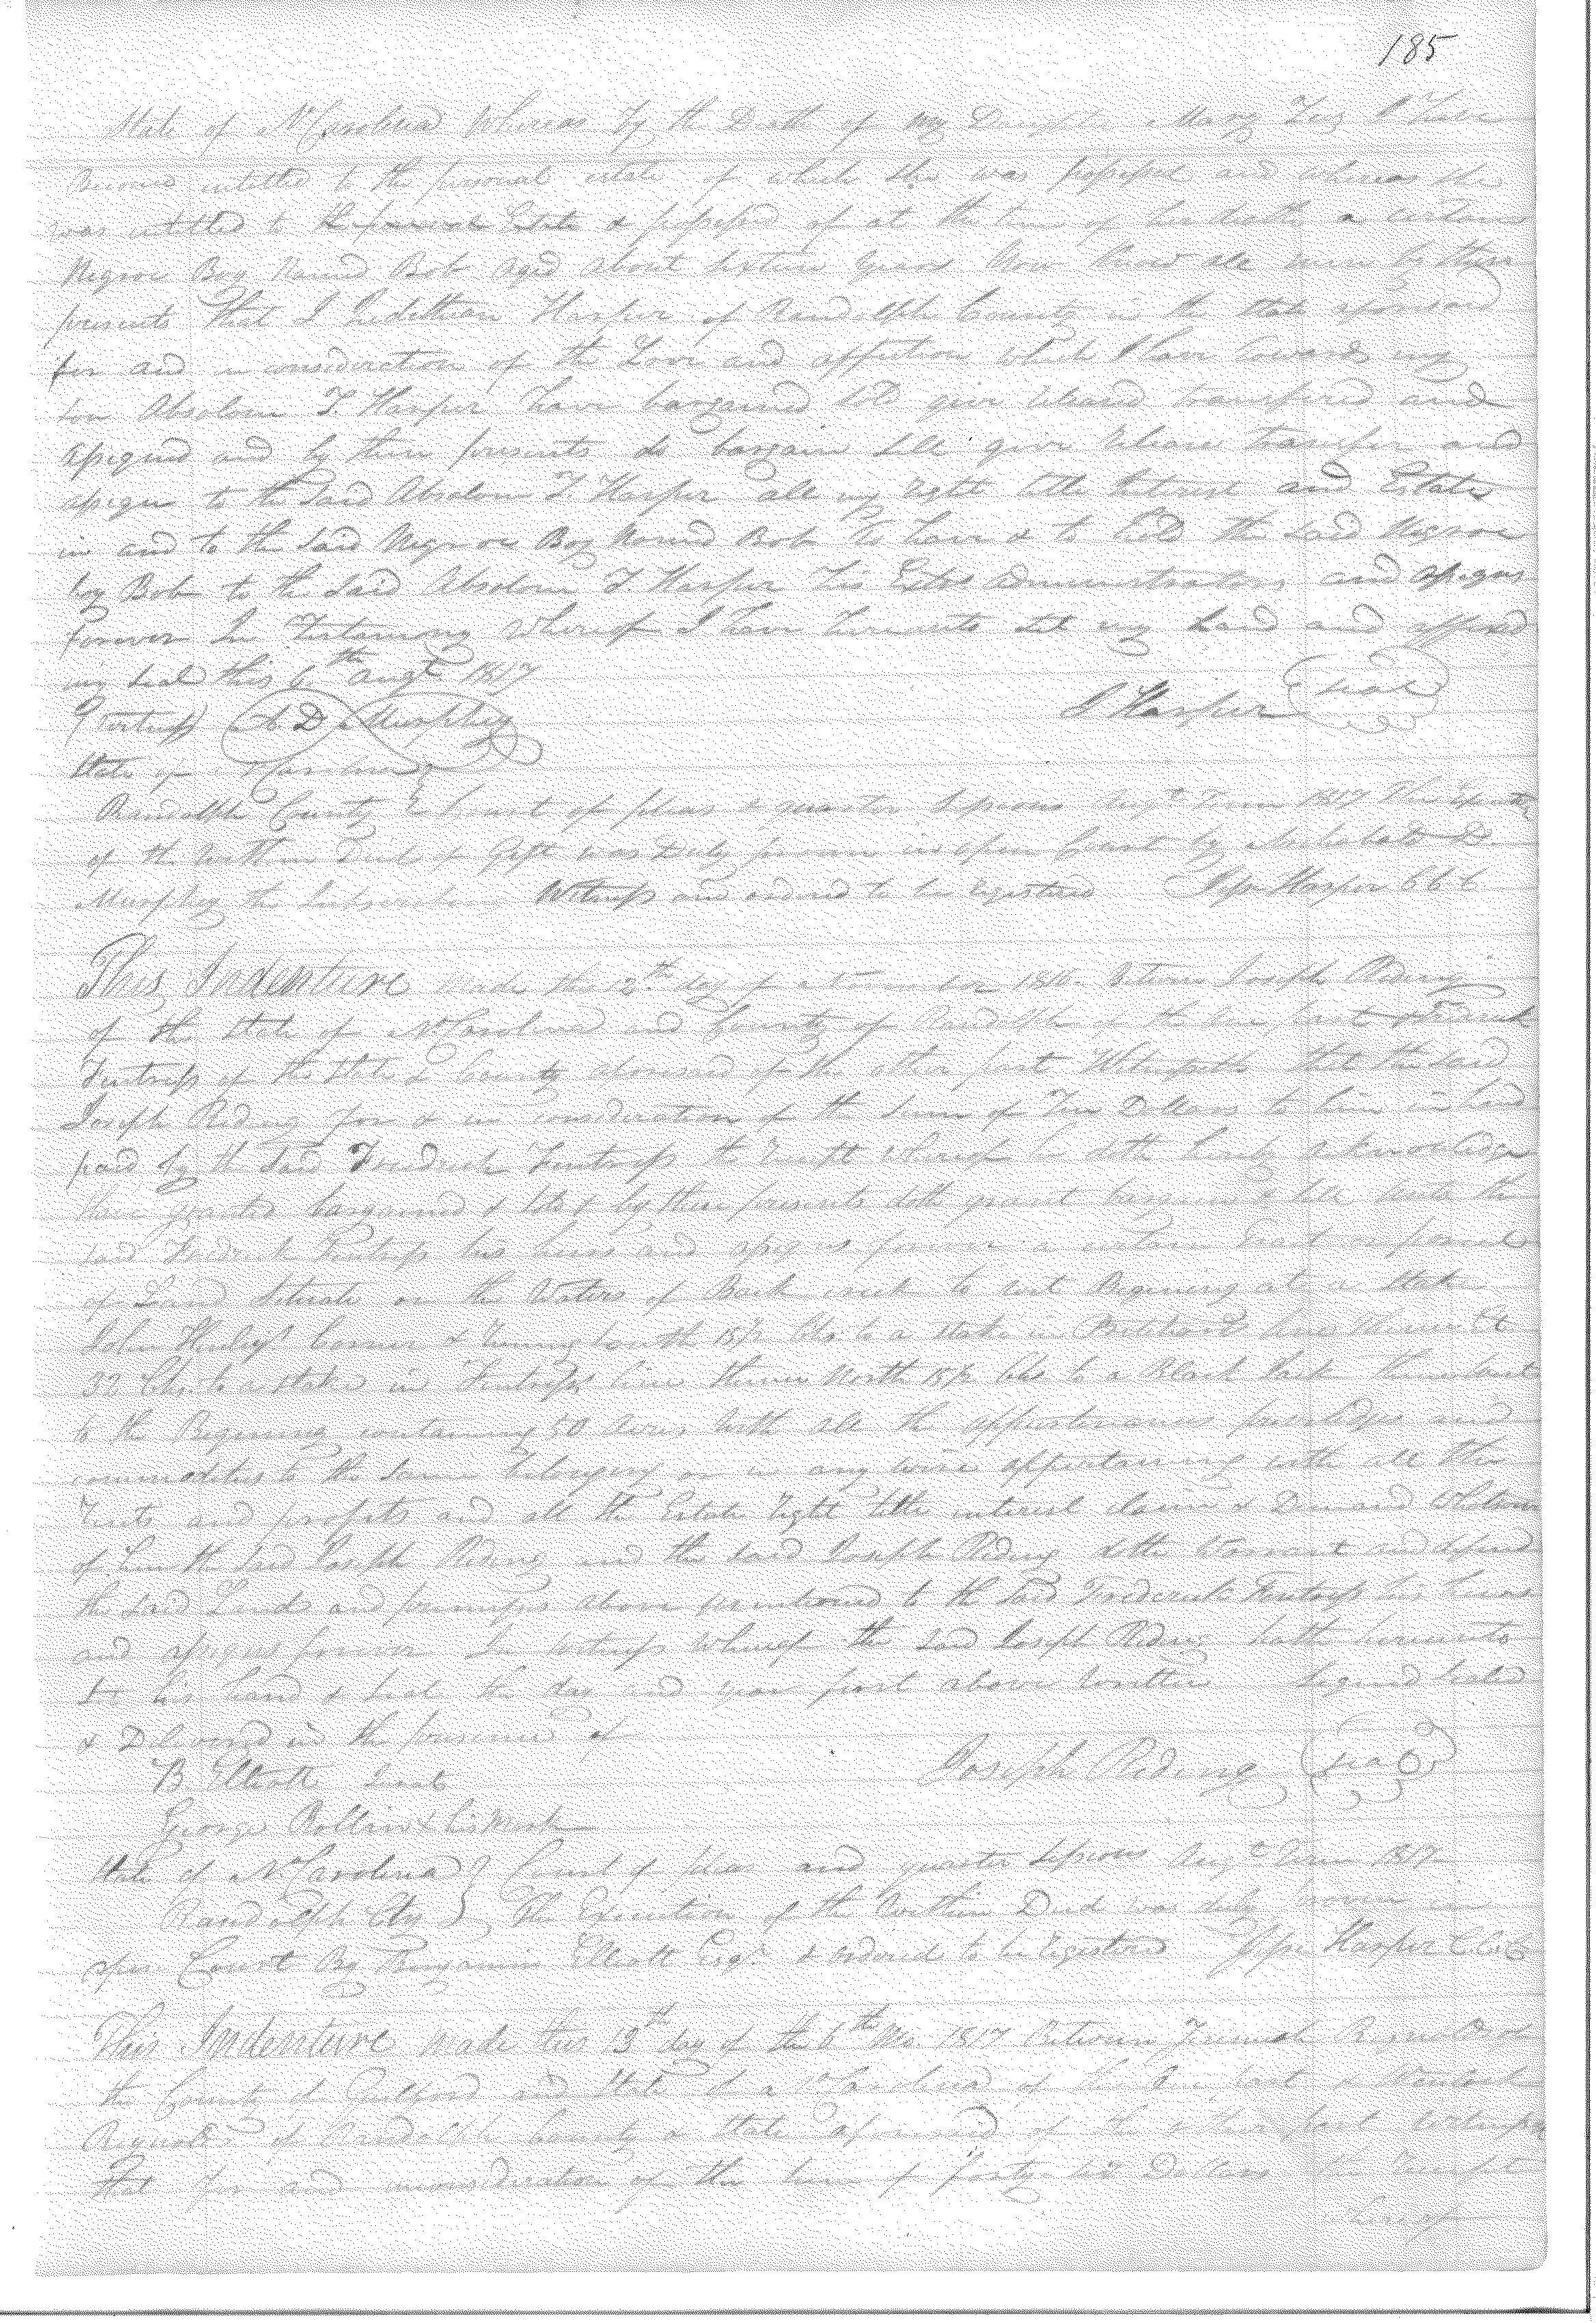 185
State of No Carolina Whereas by the Death of my Daughter Mary I have
Become intitled to the personal estate of which she was possessed and whereas she
was intitled to the personal Estate & possessed of at the time of her death a certain
Negroe Boy Named Bob aged about sixteen years Now Know all men by these
presents that I Jedithan Harper of Randolph County in the State aforesaid
for and in consideration of the Love and affection which I have towards my
son Absolom T. Harper have bargained sold give released transfered and
assigned and by these presents do bargain sell give release transfer and
assign to the said Absolom T. Harper all my right title Interest and Estate
in and to the said Negroe Boy Named Bob To have & to hold the said Negroe
boy Bob to the said Absolom T Harper his Exrs administrators and assigns
forever In Testamony whereof I have hereunto set my hand and affixed
my seal this 6th augt 1817
J Harper seal
Testess A D Murphey
State of N Carolina
Randolph County Court of pleas & quarter Sessions Augt Term 1817 The Execution
of the within Deed of Gift was Duly proven in open Court by Archabald D.
Murphey the Subscribing Witness and ordered to be registered Jesse Harper CCC
This Indenture made this 2th day of November 1816. Between Joseph Riding
of the State of No Carolina and County of Randolph of the one part & Fredrick
Fentriss of the State & County aforesaid of the other part Witnesseth that the said
Joseph Riding for & in consideration of the sum of Ten Dollars to him in hand
paid by the said Fredrick Fentriss the receipt whereof he doth hereby acknowledge
Have granted bargained & sold & by these presents doth grant bargain & sell unto the
said Fredrick Fentriss his heirs and assigns forever a certain tract or parcel
of Land situate on the Waters of Back creek to wit Begining at a Stake
John Henley's Corner & runing South 15½ Chs. to a stake in line thence
32 Chs. to a stake in Fentriss line thence North 15½ Chs to a Black Oak thence
to the Begining containing 50 acres with all the appurtenances priviledges and
commodities to the same belonging or in any wise appertaining with all the
rents and profits and all the Estate right title interest claim & Demand whatsoever
of him the said Joseph Riding and the said Joseph Riding doth Warrant and defend
the said Lands and premises above mentioned to the said Frederick Fentriss his heirs
and assigns forever In witness whereof the said Joseph Riding hath hereunto
set his hand & seal the day and year first above written Signed Sealed
& Delivered in the presence of
Joseph Riding seal
B Elliott Jurat
George Rollins X his Mark
State of No Carolina Court of pleas and quarter Sessions Augt Term 1817
Randolph Cty The Execution of the within Deed was duly proven in
open Court By Benjamin Elliott Esqr. & ordered to be registered Jesse Harper CCC
This Indenture made this 13th day of the 6th Mo. 1817 Between Reynolds of
the County of Guilford and State of No Carolina of the one part &
Reynolds of Randolph County & State aforesaid of the other part witnesseth
that for and in consideration of the sum of forty six Dollars the receipt
whereof